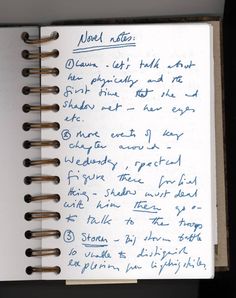 Novel notes:
① Laura - let's talk about
her physically and the
first time that she and
shadow met - her eyes
etc.
② more events of key
chapter around -
Wednesday, spectral
figure there
thing - shadow must deal
with him there. go on
to talk to the troops
③ Storm - big storm battle
so unable to distinguish
explosions from lightning strikes